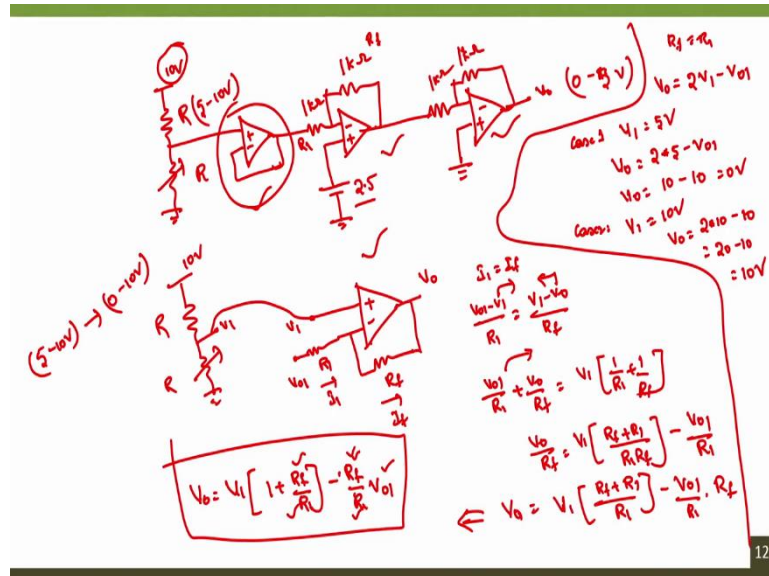 10V
R (5-10V)
R
+
-
R1
1kΩ
1kΩ Rf
-
+
2.5
1kΩ
1kΩ
-
+
V0
Rf = R1
V0 = 2V1 - V01
Case 1 V1 = 5V
V0 = 2*5 - V01
V0 = 10 - 10 = 0V
V1 = 10V
V0 = 2*10 - 10
= 20 - 10
= 10V
(5-10V) → (0-10V)
10V
R
V1
R
V1
+
-
V0
V01
R1
I1
Rf
If
I1 = If
V01-V1/R1 = V1-V0/Rf
V01/R1 + V0/Rf = V1 [1/R1 + 1/Rf]
V0/Rf = V1 [Rf+R1/R1Rf] - V01/R1
⇐ V0 = V1 [Rf+R1/R1] - V01/R1 . Rf
V0 = V1 [1 + Rf/R1] - Rf/R1 V01
12